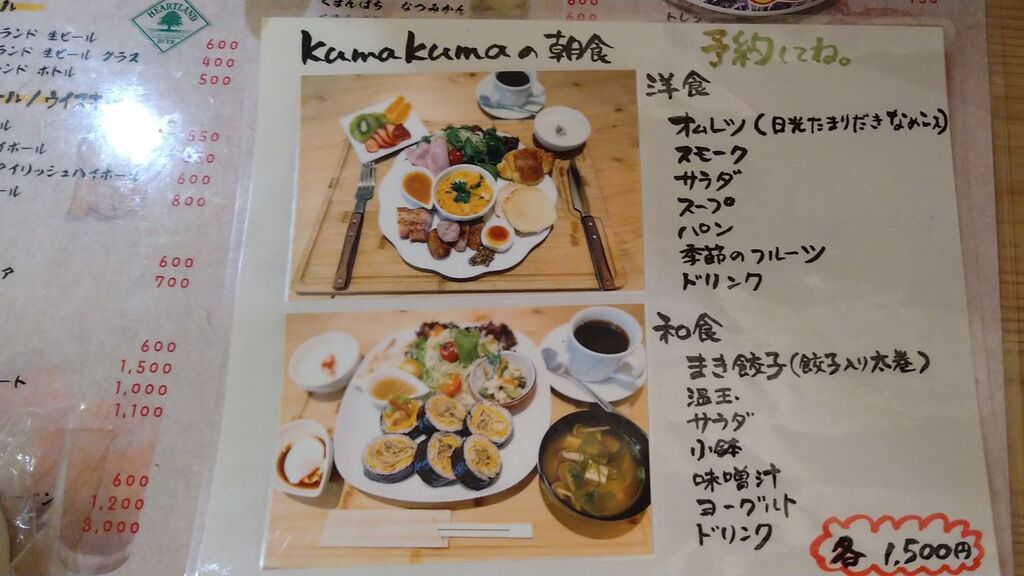 くまんばち なつみかん
HEARTLAND
ランド 生ビール 600
ランド 生ビール グラス 400
ンド ボトル 500
550
イボール
アイリッシュハイボール 600
ール 800
600
ア 700
600
1,500
ート 1,000
1,100
600
1,200
3,000
600
kumakumaの朝食
予約してね。
洋食
オムレツ(日光たまりだきなめこ入)
スモーク
サラダ
スープ
パン
季節のフルーツ
ドリンク
和食
まき餃子(餃子入り太巻)
温玉
サラダ
小鉢
味噌汁
ヨーグルト
ドリンク
各 1,500円